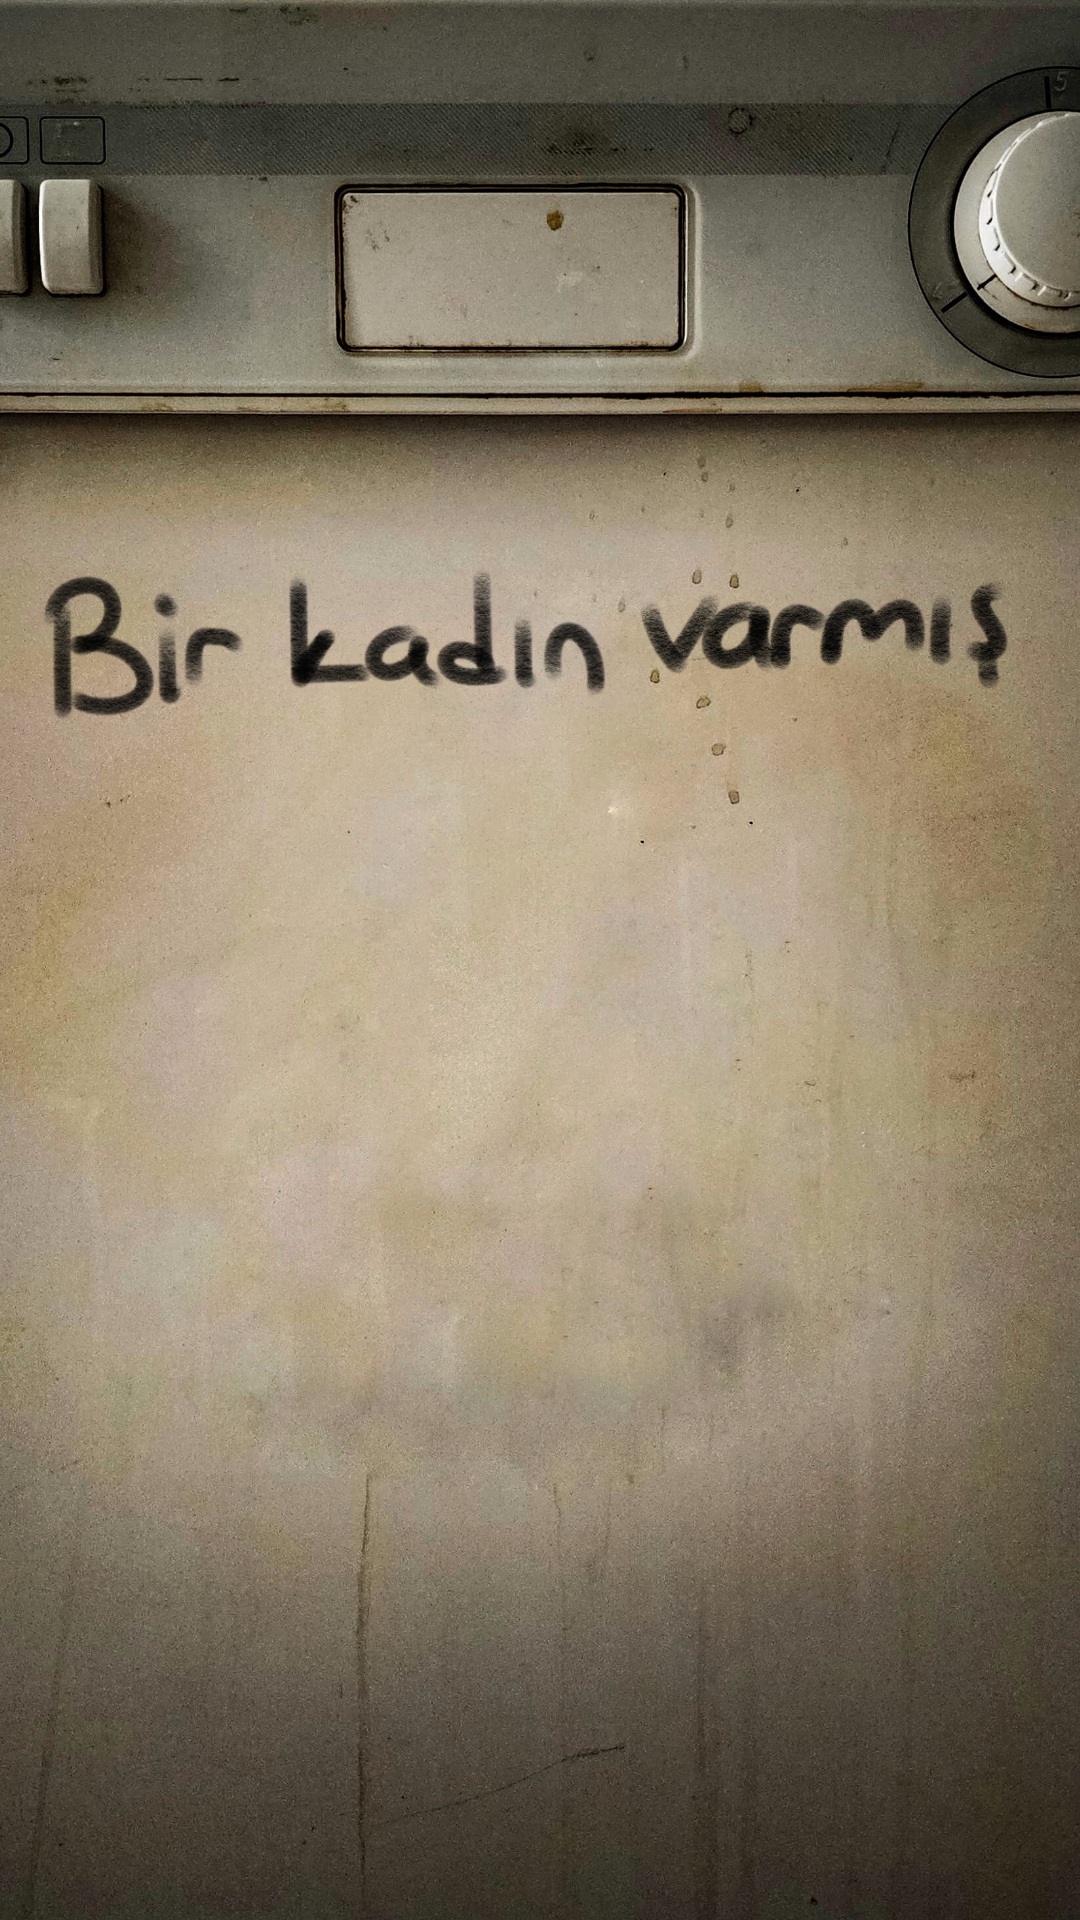 Bir kadın varmış
5